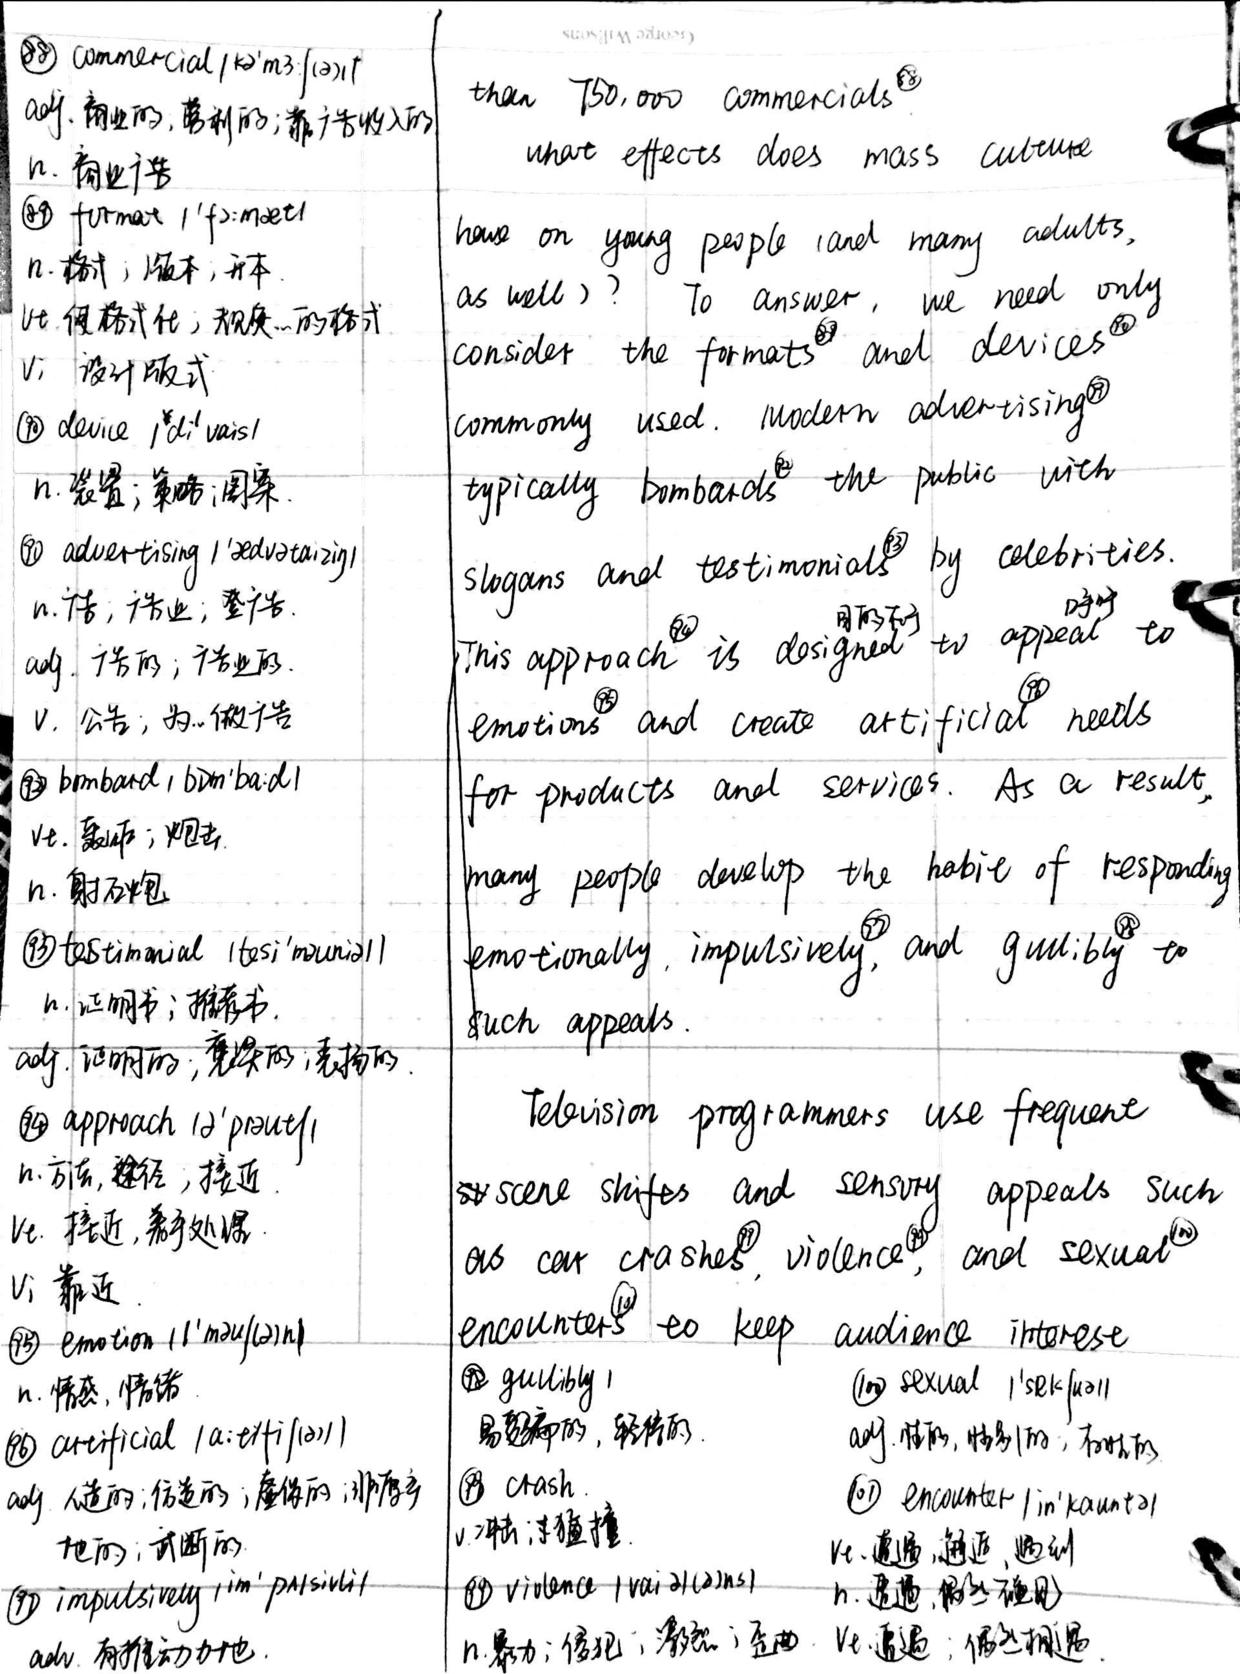 George Wilsons
88 commercial /kə'mɜ:ʃ(ə)l/
adj. 商业的, 营利的; 靠广告收入的
n. 商业广告
89 format /'fɔ:mæt/
n. 格式; 版本; 开本.
vt. 使格式化; 规定...的格式
vi 设计版式
90 device /di'vais/
n. 装置; 策略; 图案.
91 advertising /'ædvətaiziŋ/
n. 广告; 广告业; 登广告.
adj. 广告的; 广告业的.
v. 公告; 为...做广告
92 bombard /bɒm'ba:d/
vt. 轰炸; 炮击.
n. 射石炮
93 testimonial /tesi'məuniəl/
n. 证明书; 推荐书.
adj. 证明的; 褒奖的; 表扬的.
94 approach /ə'prəutʃ/
n. 方法, 途径; 接近.
vt. 接近, 着手处理.
vi 靠近.
95 emotion /i'məuʃ(ə)n/
n. 情感, 情绪.
96 artificial /a:tifiʃ(ə)l/
adj 人造的; 仿造的; 虚伪的; 非原产
地的; 武断的
97 impulsively /im'pʌlsivli/
adv. 有推动力地.
than 750,000 commercials 88
what effects does mass culture
have on young people (and many adults,
as well)? To answer, we need only
consider the formats 89 and devices 90
commonly used. Modern advertising 91
typically bombards 92 the public with
slogans and testimonials 93 by celebrities.
目的在于 呼吁
This approach 94 is designed to appeal to
emotions 95 and create artificial 96 needs
for products and services. As a result,
many people develop the habit of responding
emotionally, impulsively 97, and gullibly 98 to
such appeals.
Television programmers use frequent
scene shifts and sensory appeals such
as car crashes 99, violence 99, and sexual 100
encounters 101 to keep audience interest
98 gullibly /
易受骗的, 轻信的.
crash.
v. 冲击; 猛撞.
99 violence /vaiəl(ə)ns/
n. 暴力; 侵犯; 激烈; 歪曲.
100 sexual /'sekʃuəl/
adj. 性的, 性别的; 有性的
101 encounter /in'kauntə/
vt. 遭遇, 邂逅, 遇到
n. 遭遇, 偶然碰见
vt. 遭遇; 偶然相遇.